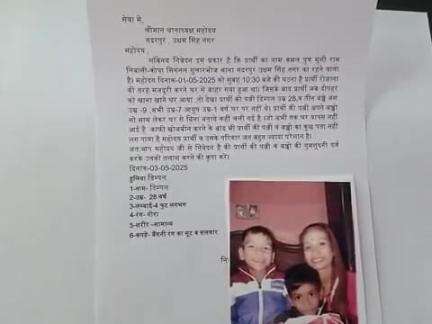 सेवा में,
श्रीमान थानाध्यक्ष महोदय
गदरपुर , उधम सिंह नगर
महोदय,
सविनय निवेदन इस प्रकार है कि प्रार्थी का नाम कमल पुत्र मुन्नी राम
निवासी-कोपा सिमनल थाना गदरपुर उधम सिंह नगर का रहने वाला
है। महोदय दिनांक-01-05-2025 को सुबह 10:30 बजे की घटना है प्रार्थी रोजाना
की तरह मजदूरी करने घर से बाहर गया हुआ था। जिसके बाद प्रार्थी जब दोपहर
को खाना खाने घर आया तो देखा प्रार्थी की पत्नी डिम्पल उम्र 28, व तीन बच्चे
उम्र -9 , उम्र-7 उम्र-1 वर्ष घर पर नहीं थे प्रार्थी की पत्नी अपने बच्चों
को साथ लेकर घर से बिना बताये कहीं चली गई है। जो अभी तक घर वापस नहीं
आई है काफी खोजबीन करने के बाद भी प्रार्थी की पत्नी व बच्चों का कुछ पता नहीं
लग पाया है महोदय प्रार्थी व उसके परिवार जन बहुत ज्यादा परेशान है।
अतः आप महोदय जी से निवेदन है की प्रार्थी की पत्नी व बच्चों की गुमशुदगी दर्ज
करके उनकी तलाश करने की कृपा करें।
दिनांक-03-05-2025
हुलिया डिम्पल
1-नाम- डिम्पल
2-उम्र- 28 वर्ष
3-लम्बाई-4 फुट लगभग
4-रंग- गोरा
5-शरीर -सामान्य
6-कपड़े- बैंगनी रंग का सूट व सलवार